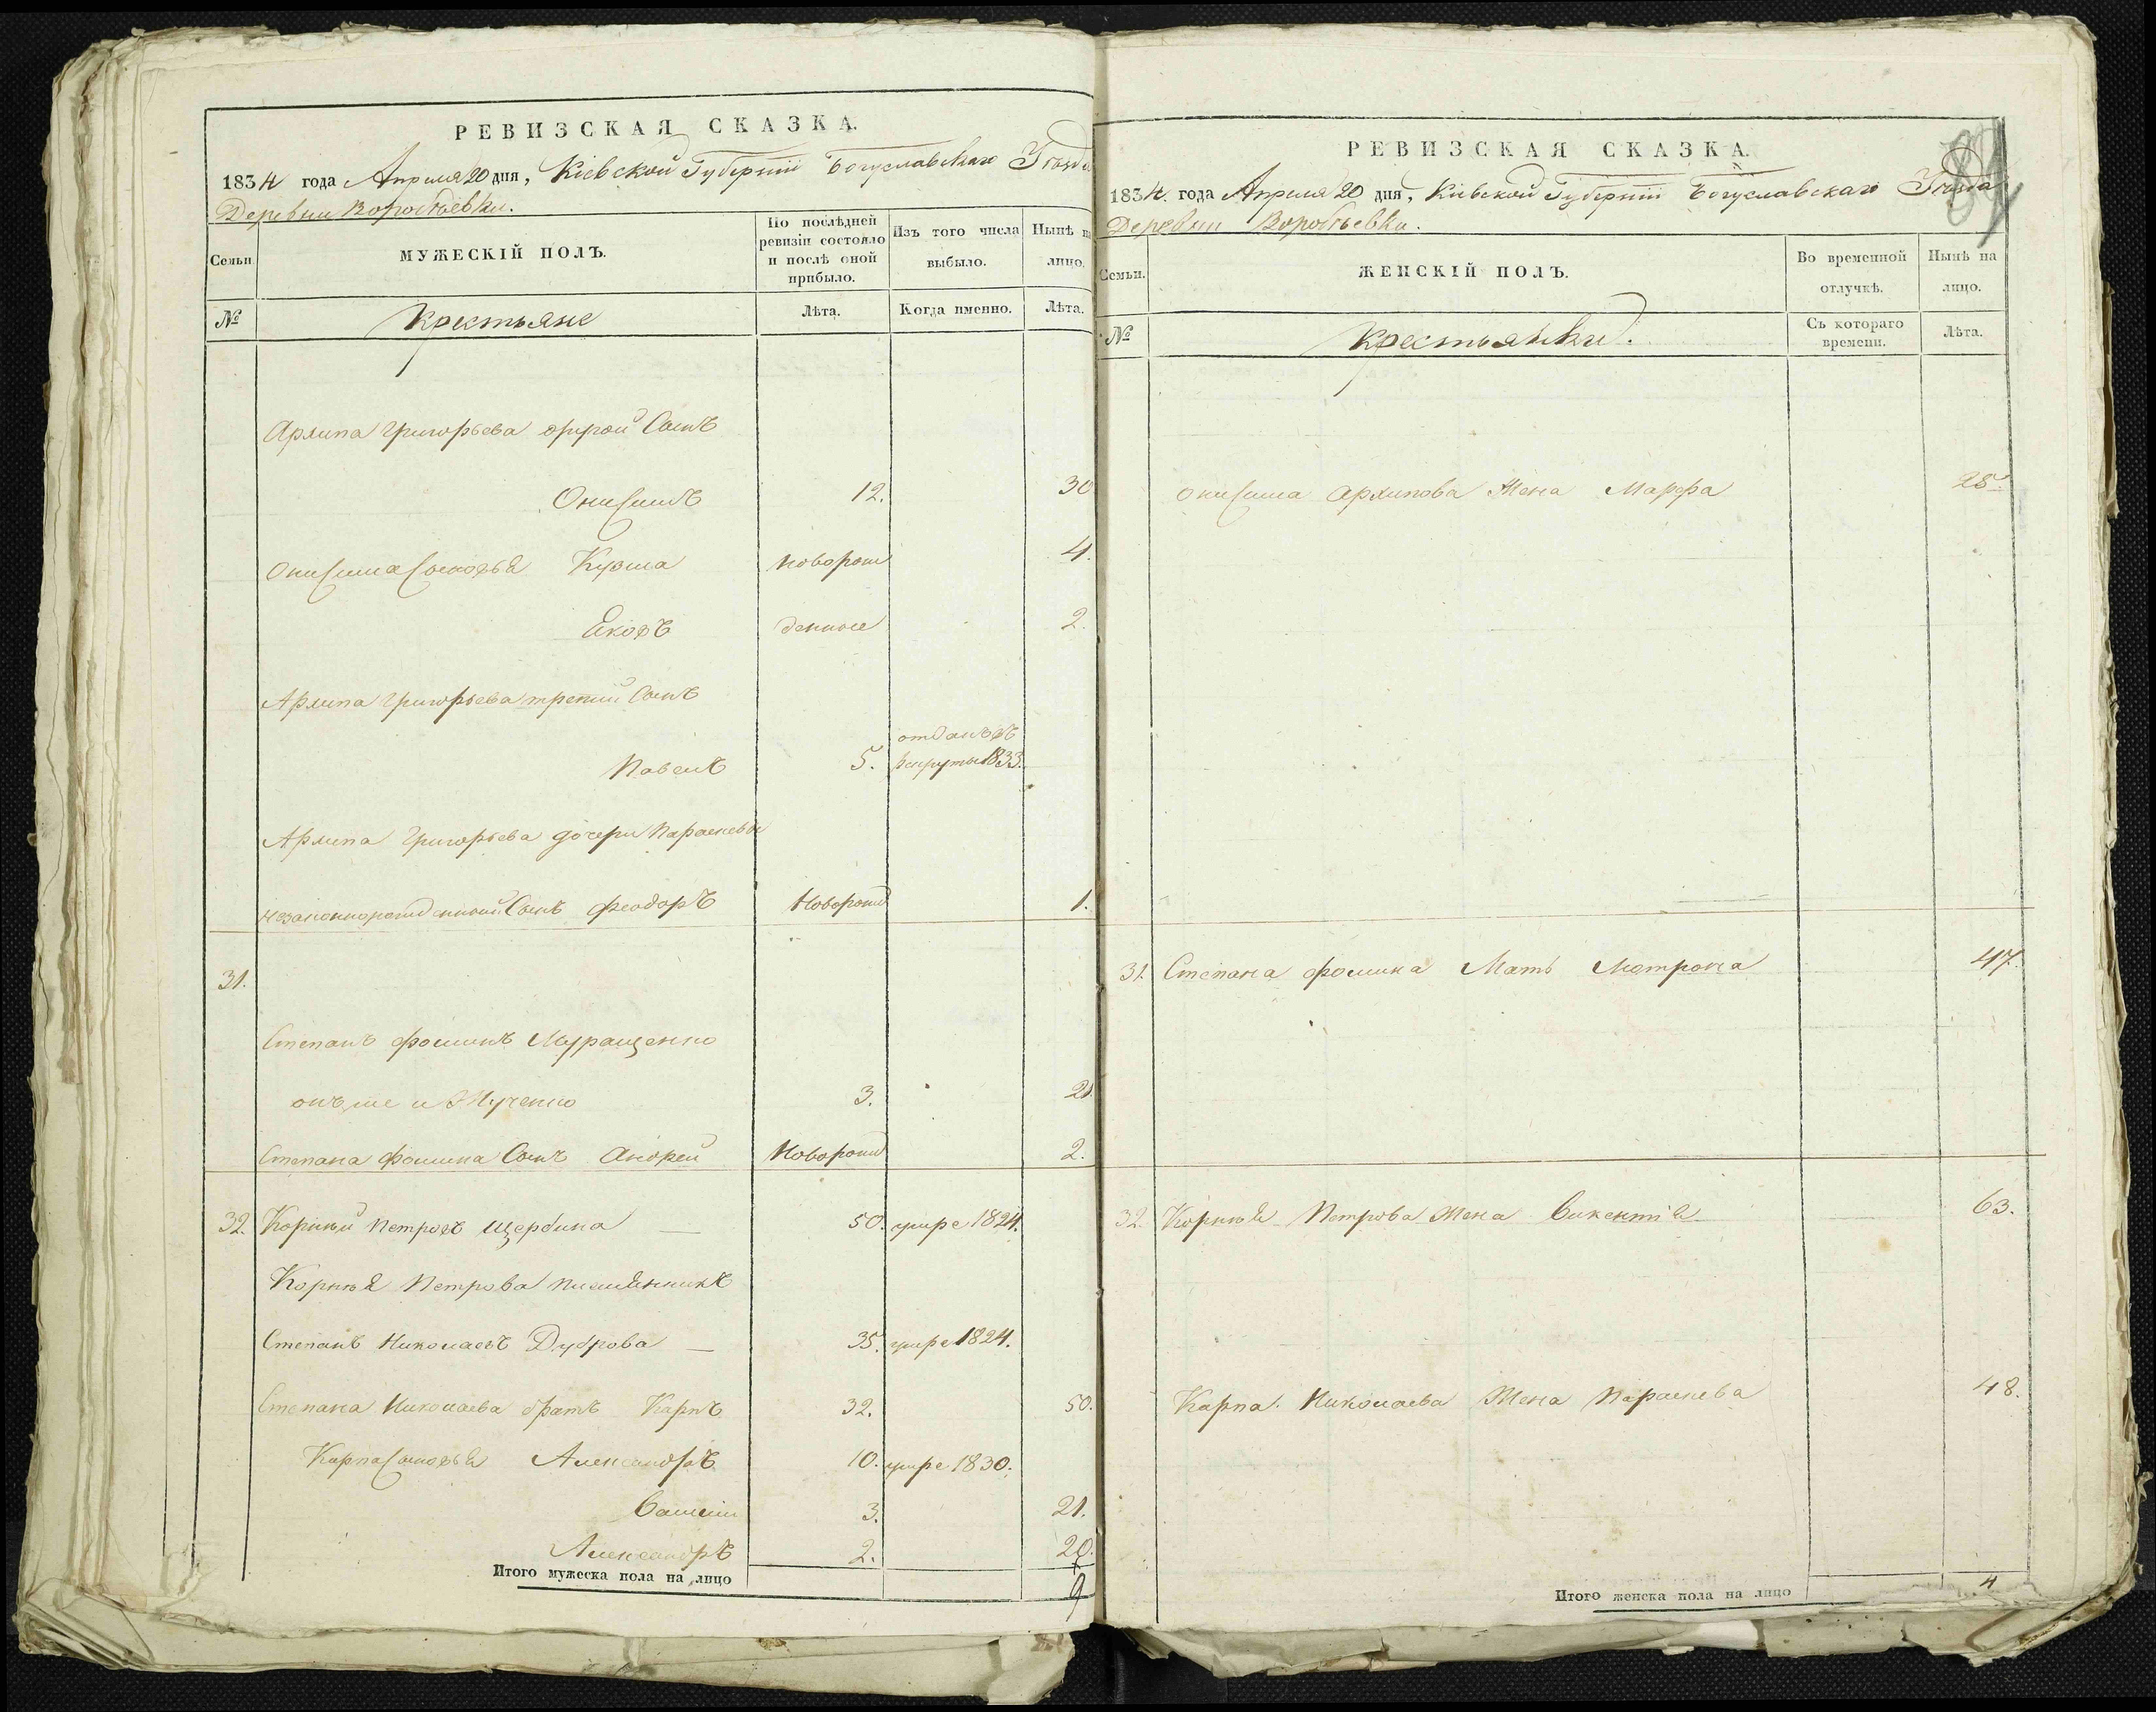 РЕВИЗСКАЯ СКАЗКА.
1834 года Апреля 20 дня, Кіевской Губерніи Богуславскаго Уѣзда
Деревни Воробьевки.
Семьи.
МУЖЕСКІЙ ПОЛЪ.
По послѣдней ревизіи состояло и послѣ оной прибыло.
Изъ того числа выбыло.
Нынѣ на лицо.
№
Крестьяне
Лѣта.
Когда именно.
Лѣта.
Архипа Григорьева другой Сынъ
Онисимъ 12. 30
Онисима Сыновья Кузма новорож 4.
Яковъ денные 2.
Архипа Григорьева третий Сынъ
отданъ въ
Павелъ 5. рекруты 1833.
Архипа Григорьева дочери Параскевы
незаконнорожденный Сынъ Феодоръ Новорожд 1.
31.
Степанъ Фоминъ Муращенко
онъ же и 3.
Степана Фомина Сынъ Андрей Новорожд 2.
32. Корнѣй Петровъ Щербина — 50. умре 1824.
Корнѣя Петрова племянникъ
Степанъ Николаевъ Дуброва — 35. умре 1824.
Степана Николаева братъ Карпъ 32. 50.
Карпа Сыновья Александръ 10. умре 1830.
Василий 3. 21.
Александръ 2. 20.
Итого мужеска пола на лицо 9
РЕВИЗСКАЯ СКАЗКА.
1834. года Апреля 20 дня, Кіевской Губерніи Богуславскаго Уѣзда
Деревни Воробьевки.
Семьи.
ЖЕНСКІЙ ПОЛЪ.
Во временной отлучкѣ.
Нынѣ на лицо.
№
Крестьянки.
Съ котораго времени.
Лѣта.
Онисима Архипова Жена Марфа 28.
31. Степана Фомина Мать Мотрона 47.
32. Корнѣя Петрова Жена Викентія 63.
Карпа Николаева Жена Параскева 48.
Итого женска пола на лицо 4